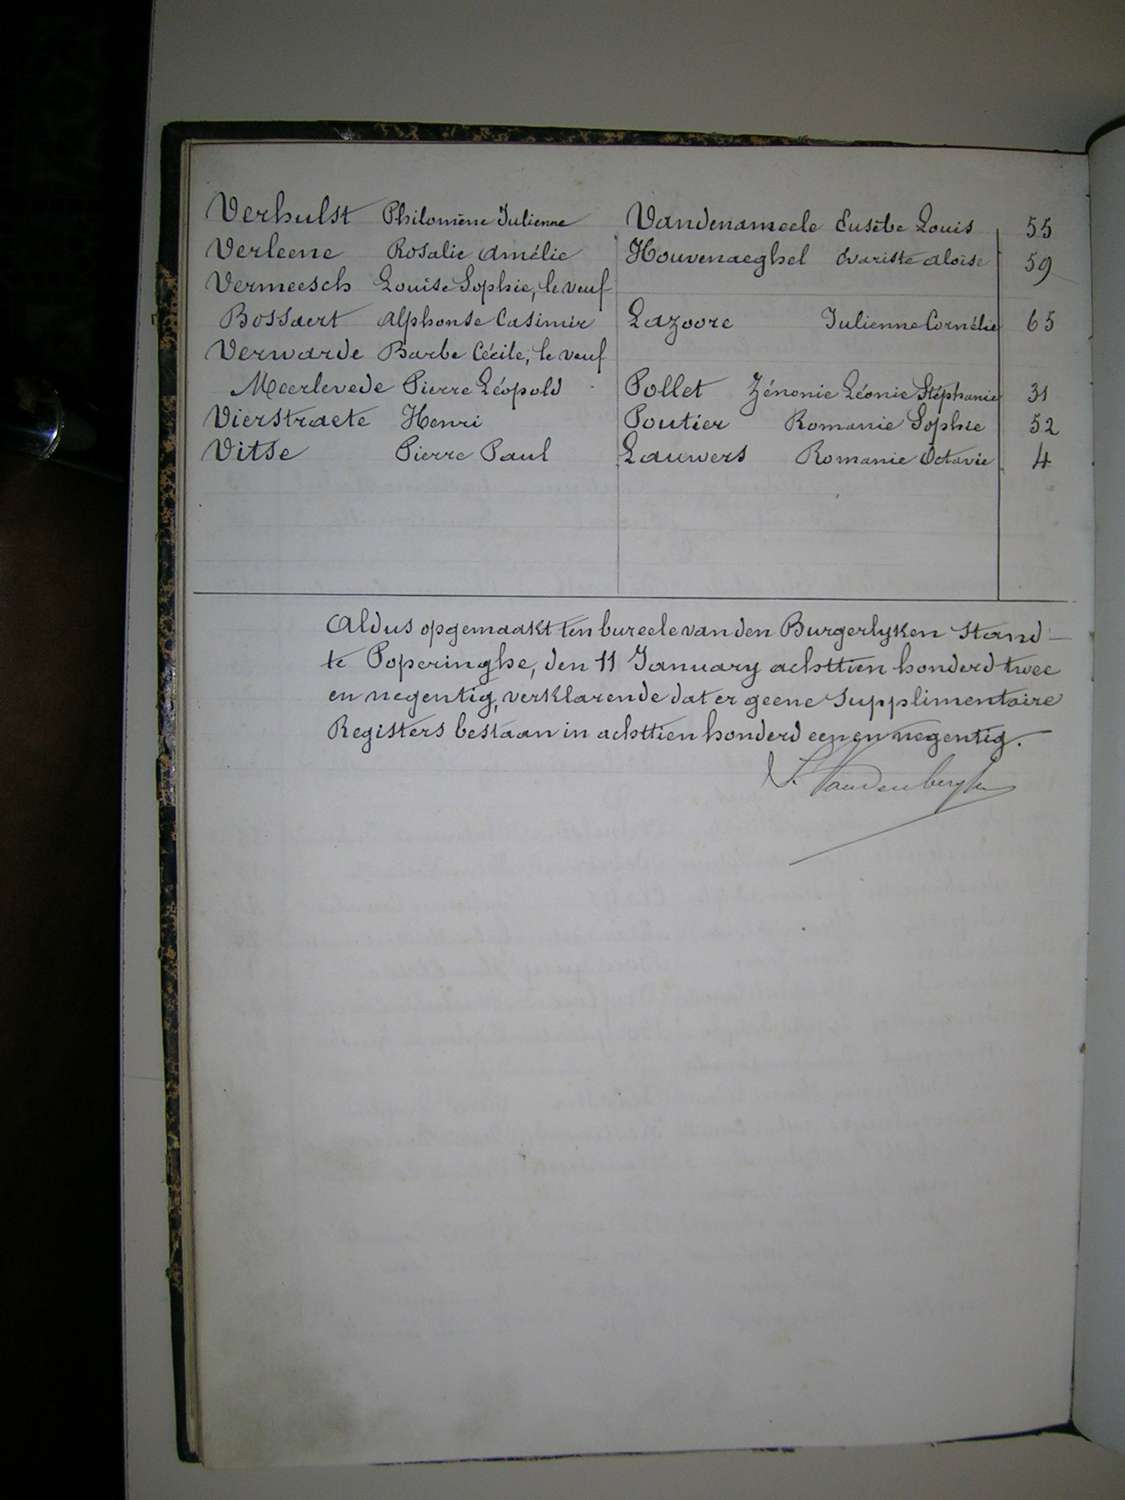 Verhulst Philomène Julienne Vandenameele Eusèbe Louis 55
Verleene Rosalie Amélie Houvenaeghel Evariste Aloïse 59
Vermeesch Louise Sophie, le veuf
Bossaert Alphonse Casimir Lazoore Julienne Cornélie 65
Verwarde Barbe Cécile, le veuf
Meerlevede Pierre Léopold Pollet Zénonie Léonie Stéphanie 31
Vierstraete Henri Poutier Romanie Sophie 52
Vitse Pierre Paul Lauwers Romanie Octavie 4
Aldus opgemaakt ten bureele van den Burgerlyken Stand
te Poperinghe, den 11 January achttien honderd twee
en negentig, verklarende dat er geene Supplimentaire
Registers bestaan in achttien honderd een en negentig.
Vandenberghe